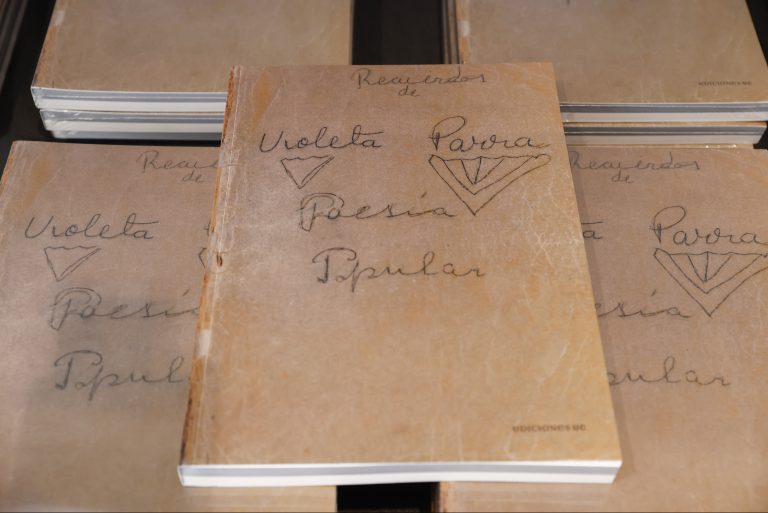 EDICIONES UC
Recuerdos
de
Violeta Parra
Poesía
Popular
EDICIONES UC
Recuerdos
de
Violeta
Poesía
Popul
Recuerdos
de
Parra
sía
ular